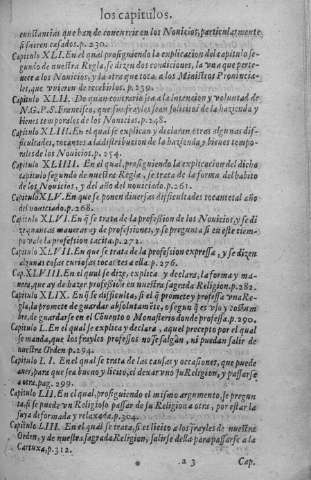 los capitulos.
cunstancias que han de concurrir en los Nouicios, particularmente
si fueren casados. p. 230.
Capitulo XLI. En el qual prosiguiendo la explicacion del capitulo se-
gundo de nuestra Regla, se dizen dos condiciones, la vna que perte-
nece a los Nouicios, y la otra que toca a los Ministros Prouincia-
les, que vuieren de recebirlos. p. 239.
Capitulo XLII. De quan contrario sea a la intencion y voluntad de
N. G. P. S. Francisco, que sus frayles sean solicitos de la hazienda y
bienes temporales de los Nouicios. p. 248.
Capitulo XLIII. En el qual se explican y declaran otras algunas dif-
ficultades, tocantes a la distribucion de la hazienda, y bienes tempo-
rales de los Nouicios. p. 254.
Capitulo XLIIII. En el qual, prosiguiendo la explicacion del dicho
capitulo segundo de nuestra Regla, se trata de la forma del habito
de los Nouicios, y del año del nouiciado. p. 261.
Capitulo XLV. En que se ponen diuersas difficultades tocantes al año
del nouiciado. p. 268.
Capitulo XLVI. En q̃ se trata de la profession de los Nouicios, y se di
ze quantas maneras ay de professiones, y se pregunta si en este tiem-
po vale la profession tacita. p. 272.
Capitulo XLVII. En que se trata de la profession expressa, y se dizen
algunas cosas curiosas tocantes a ella. p. 276.
Cap. XLVIII. En el qual se dize, explica y declara, la forma y ma-
nera, que ay de hazer profession en nuestra sagrada Religion. p. 282.
Capitulo XLIX. En q̃ se difficulta, si el q̃ promete y professa vna Re-
gla, la promete de guardar absolutamẽte, o segun q̃ es vso y costum
bre, de guardarse en el Cõuento o Monasterio donde professa. p. 290.
Capitulo L. En el qual se explica y declara, aquel precepto por el qual
se manda, que los frayles professos no se salgan, ni puedan salir de
nuestra Orden. p. 294.
Capitulo LI. En el qual se trata de las causas y occasiones, que puede
auer, para que sea bueno y licito, el dexar vno su Religion, y passarse
a otra. pag. 299.
Capitulo LII. En el qual, prosiguiendo el mismo argumento, se pregun
ta, si se puede vn Religioso passar de su Religion a otra, por estar la
suya deformada y relaxada. p. 304.
Capitulo LIII. En el qual se trata, si es licito a los frayles de nuestra
Orden, y de nuestra sagrada Religion, salirse della para passarse a la
Cartuxa. p. 312.
a 3 Cap.